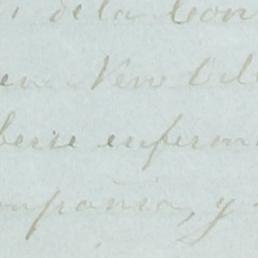 de la Con
en New Orle
berse enferm
ompañia, y